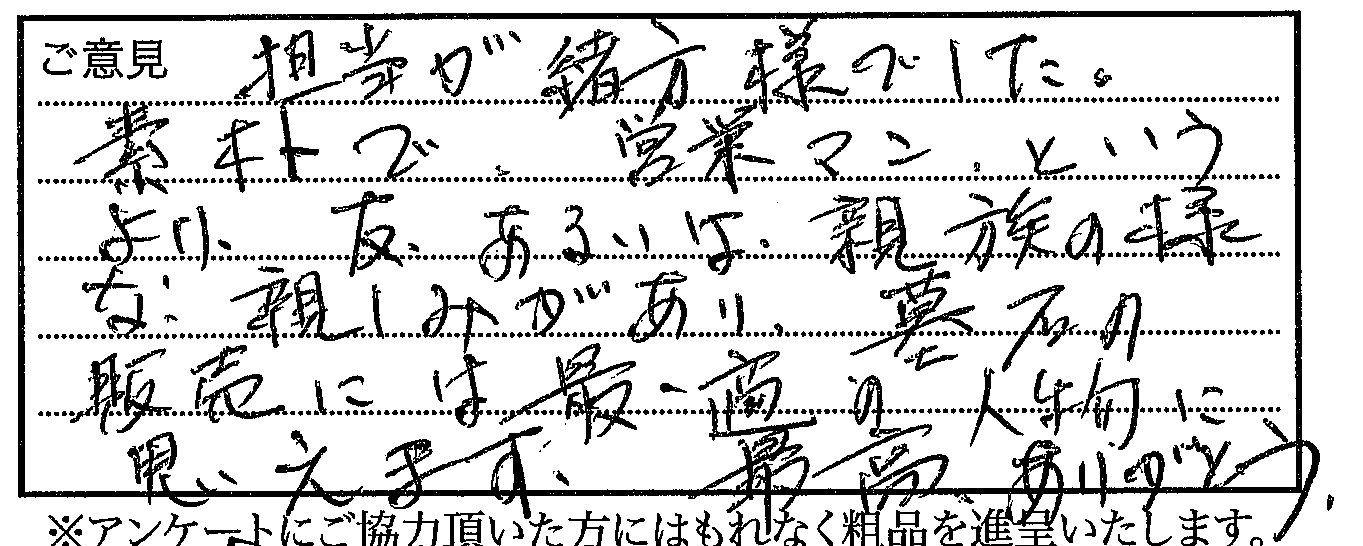 ご意見 担当が緒方様でした。
素朴で、営業マン、という
より、友、あるいは、親族の様
な、親しみがあり、墓石の
販売には最適の人物に
思えます、最高、ありがとう、
※アンケートにご協力頂いた方にはもれなく粗品を進呈いたします。